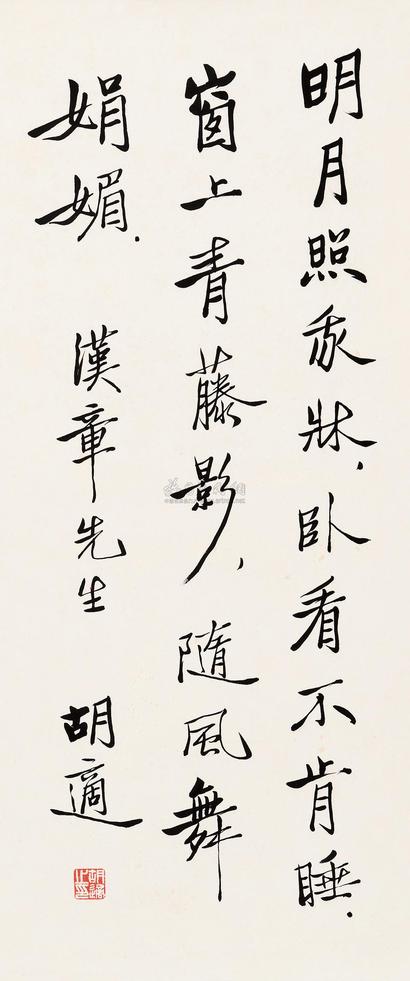 明月照我牀，卧看不肯睡．
窗上青藤影，隨風舞
娟媚．
漢章先生
胡適
胡適之印